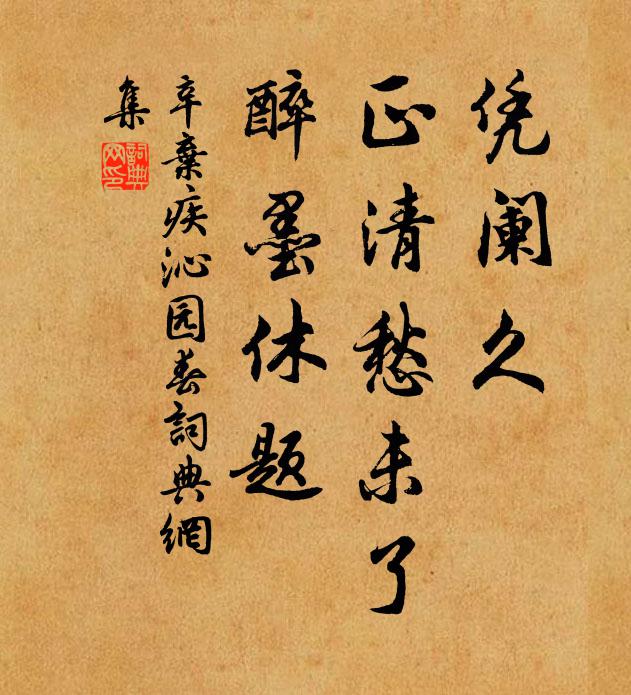 凭阑久
正清愁未了
醉墨休题
辛棄疾沁园春詞典網
集
詞典网印